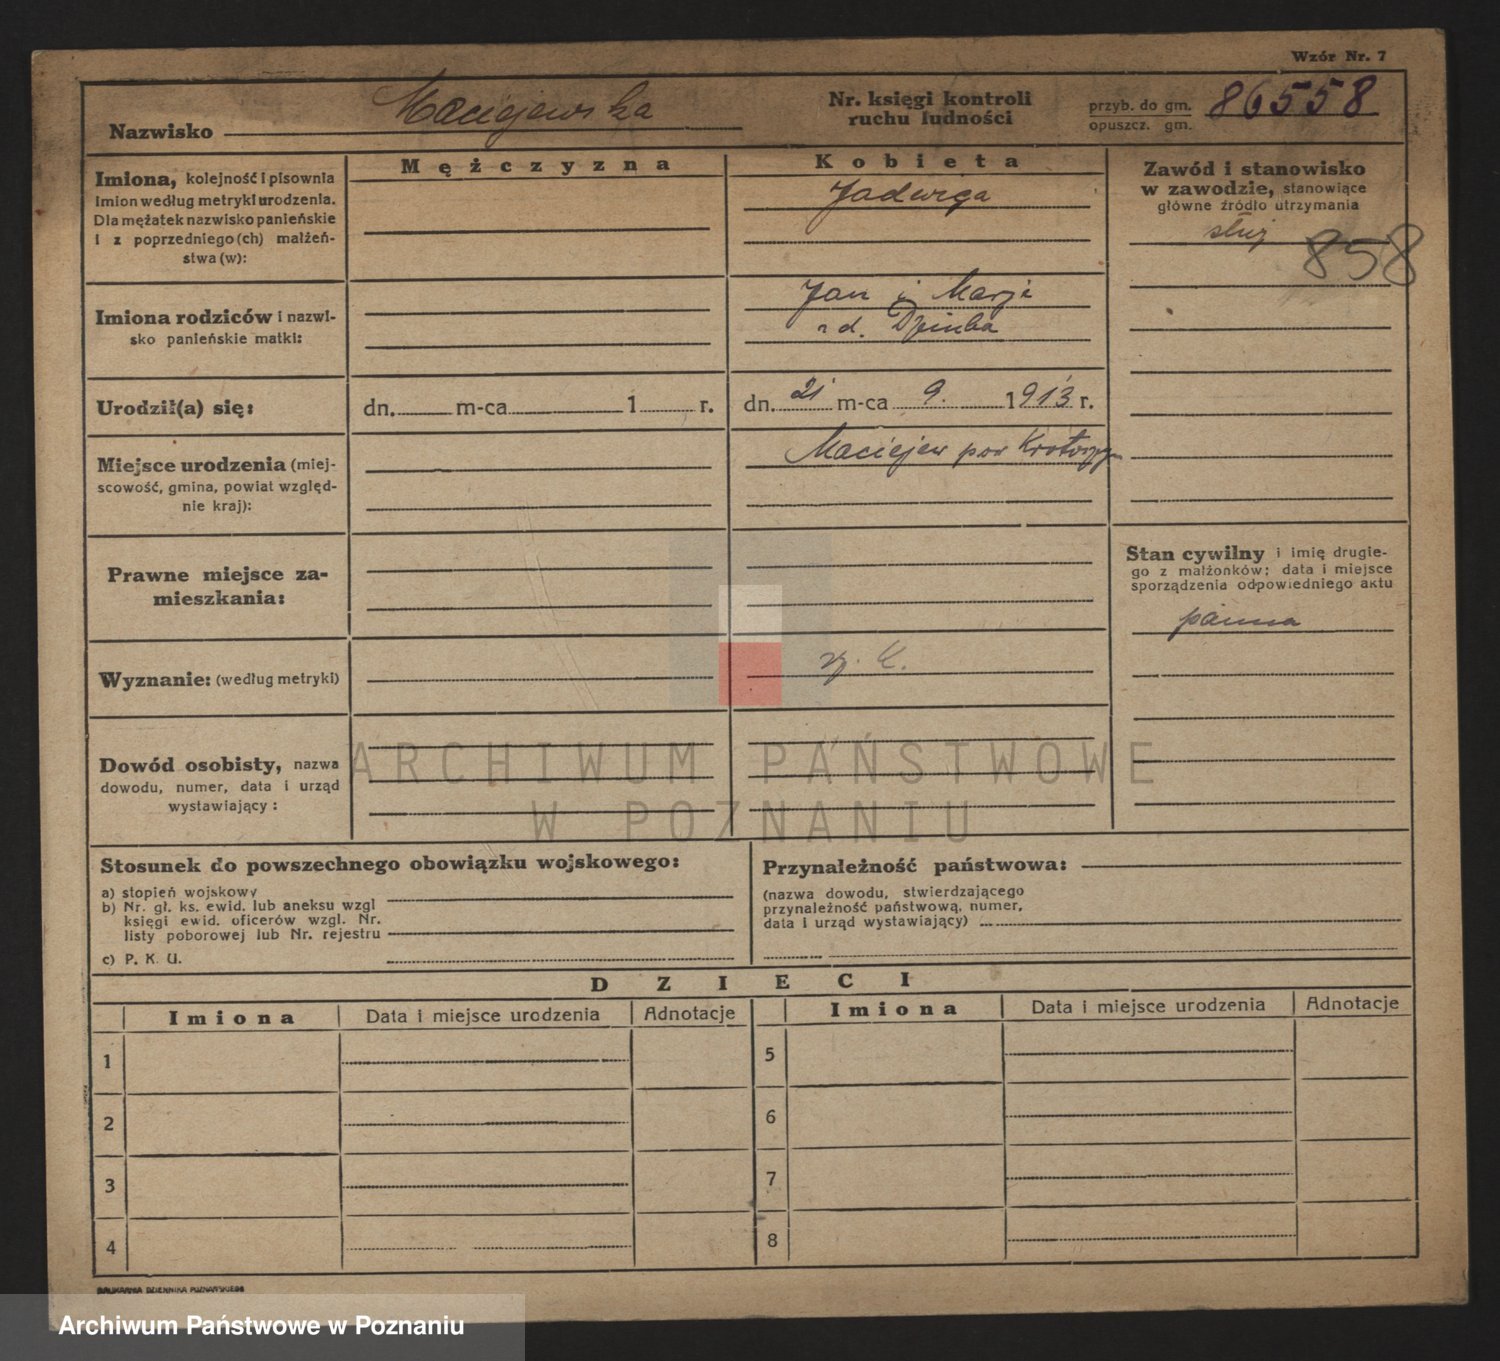 Wzór Nr. 7
Nazwisko Maciejewska
Nr. księgi kontroli ruchu ludności
przyb. do gm. 86558
opuszcz. gm.
Mężczyzna
Kobieta
Imiona, kolejność i pisownia
imion według metryki urodzenia.
Dla mężatek nazwisko panieńskie
i z poprzedniego(ch) małżeń-
stwa(w):
Jadwiga
Zawód i stanowisko
w zawodzie, stanowiące
główne źródło utrzymania
służ
858
Imiona rodziców i nazwi-
sko panieńskie matki:
Jan i Marja
Urodził(a) się:
dn. m-ca 1 r.
dn. 21 m-ca 9. 1913 r.
Miejsce urodzenia (miej-
scowość, gmina, powiat względ-
nie kraj):
Maciejew pow Krotoszyn
Prawne miejsce za-
mieszkania:
Stan cywilny i imię drugie-
go z małżonków; data i miejsce
sporządzenia odpowiedniego aktu
panna
Wyznanie: (według metryki)
rz. k.
Dowód osobisty, nazwa
dowodu, numer, data i urząd
wystawiający:
ARCHIWUM PAŃSTWOWE
W POZNANIU
Stosunek do powszechnego obowiązku wojskowego:
a) stopień wojskowy
b) Nr. gł. ks. ewid. lub aneksu wzgl
księgi ewid. oficerów wzgl. Nr.
listy poborowej lub Nr. rejestru
c) P. K. U.
Przynależność państwowa:
(nazwa dowodu, stwierdzającego
przynależność państwową, numer,
data i urząd wystawiający)
DZIECI
Imiona Data i miejsce urodzenia Adnotacje Imiona Data i miejsce urodzenia Adnotacje
1 5
2 6
3 7
4 8
DRUKARNIA DZIENNIKA POZNAŃSKIEGO
Archiwum Państwowe w Poznaniu